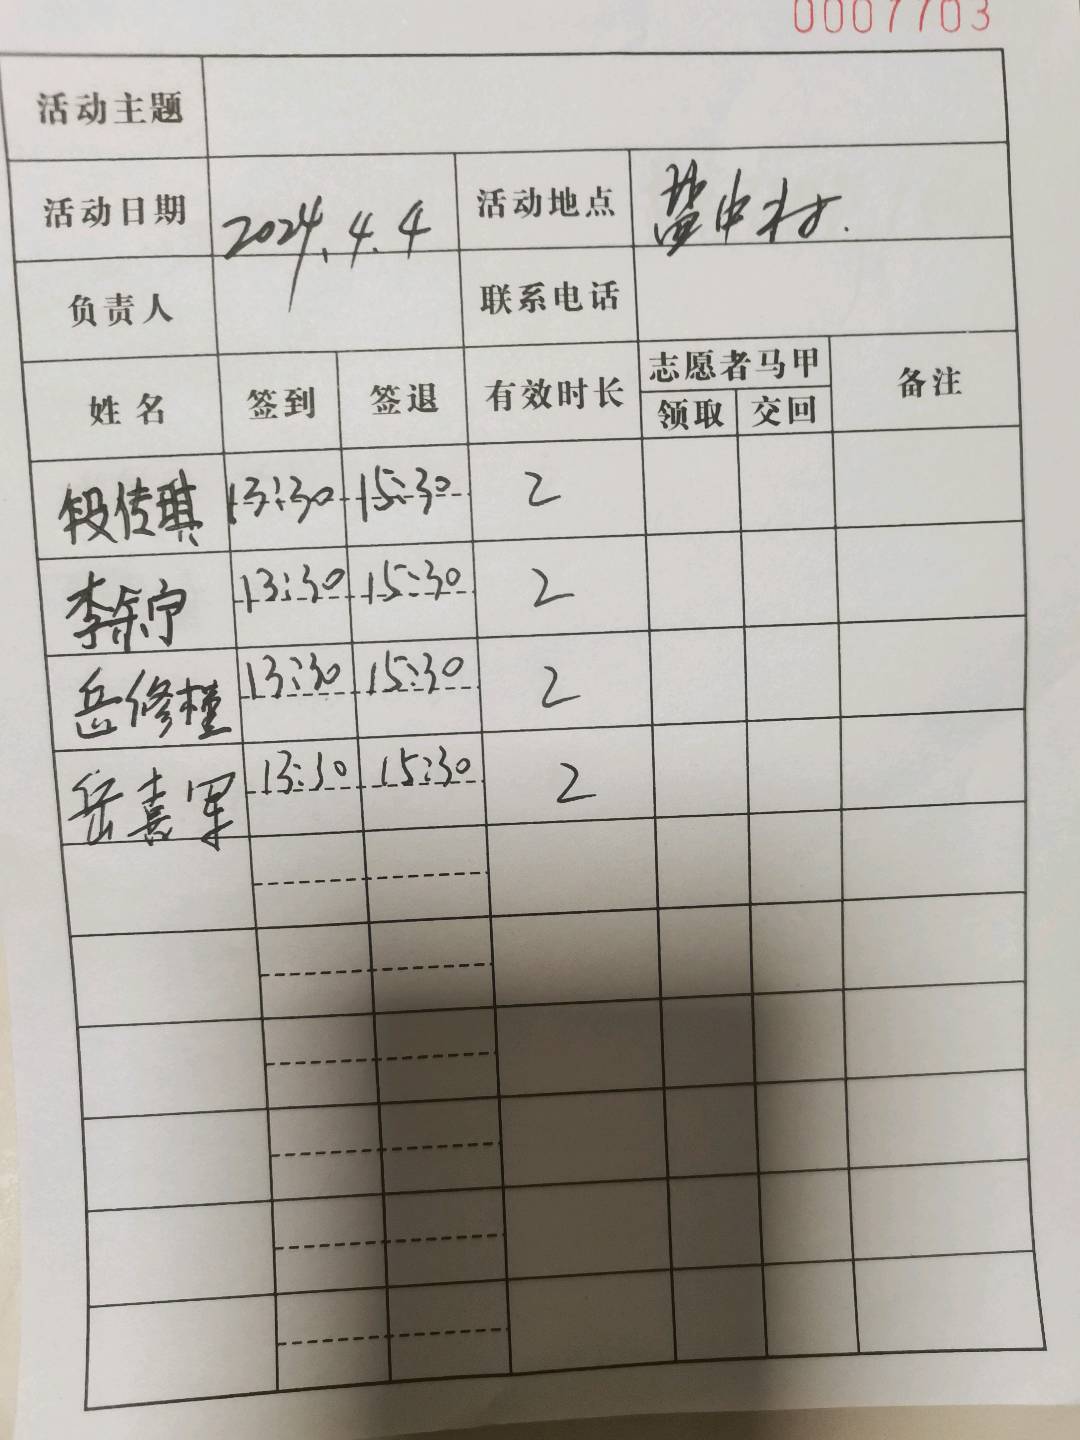 0007703
活动主题
活动日期 2024.4.4 活动地点 营中村.
负责人 联系电话
姓名 签到 签退 有效时长 志愿者马甲 备注
领取 交回
段传琪 13:30 15:30 2
李 宁 13:30 15:30 2
岳修 13:30 15:30 2
岳喜军 13:30 15:30 2